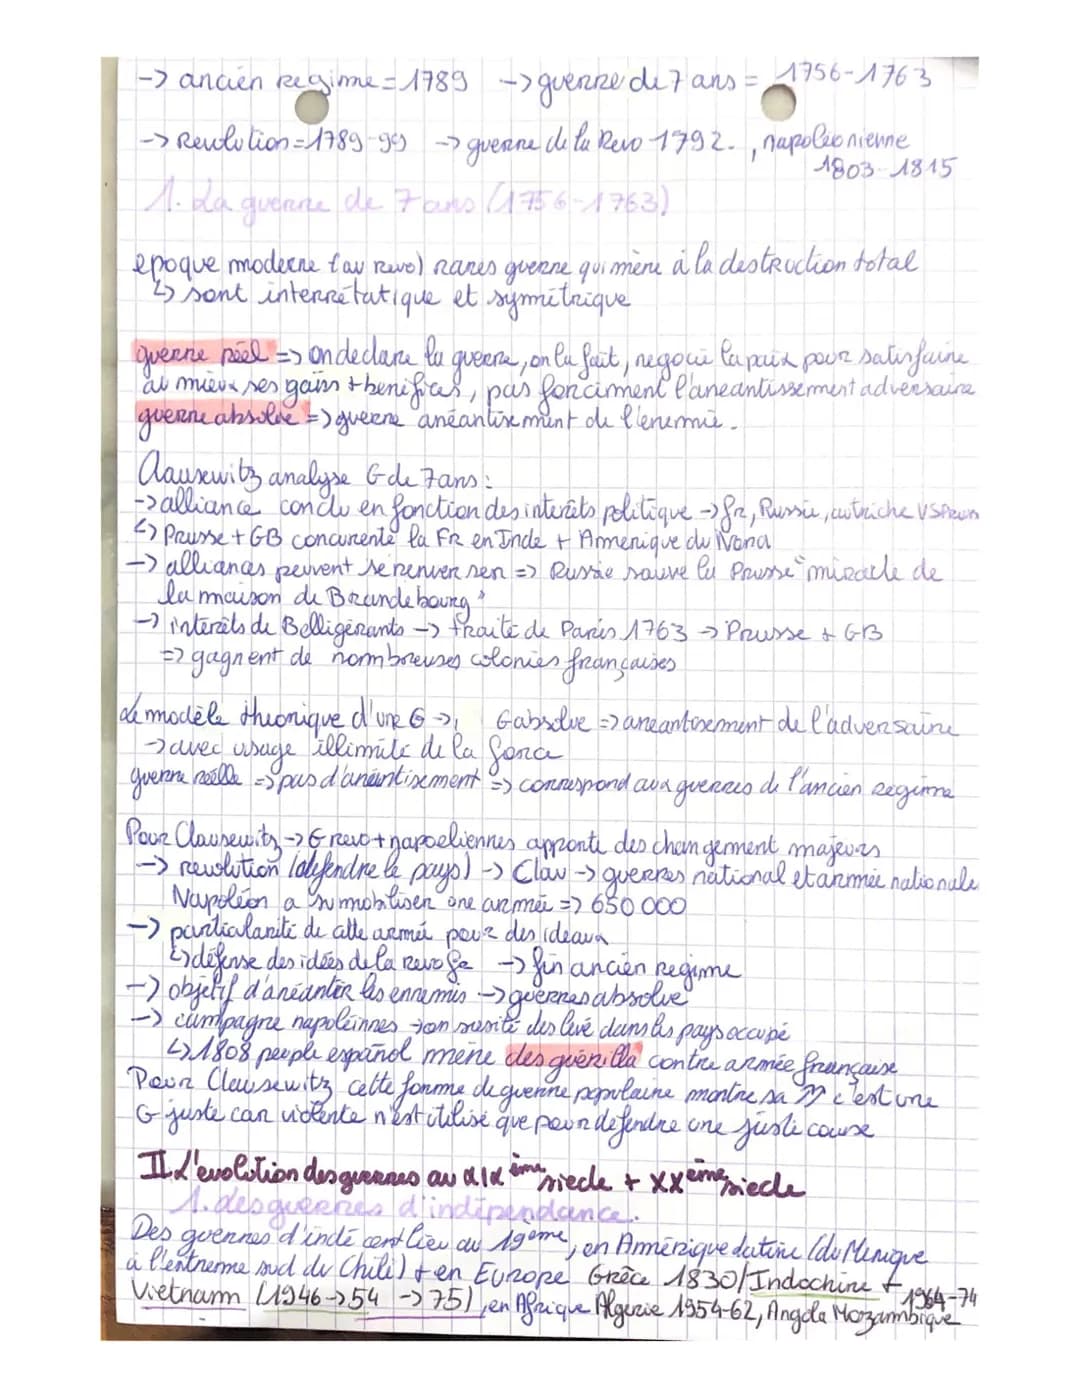 -> ancien regime = 1789 -> guerre de 7 ans = 1756-1763
-> Revolution = 1789-99 -> guerre de la Revo 1792- , napoléonienne
1803-1815
1. La guerre de 7 ans (1756-1763)
epoque moderne (av revo) rares guerre qui mène à la destruction total
↳ sont interrétatique et symétrique
guerre réel => on declare la guerre, on la fait, negocie la paix pour satisfaire
au mieux ses gains + benifices, pas forcément l'aneantissement adversaire
guerre absolue => guerre anéantissement de l'enemie.
Clausewitz analyse G de 7 ans :
-> alliance conclu en fonction des interêts politique -> fr, Russie, autriche VS Pruss
↳ Prusse + GB concurente la FR en Inde + Amerique du Nord
-> alliances peuvent se renverser => Russie sauve la Prusse "miracle de
la maison de Brandebourg"
-> interêts de Belligérants -> traité de Paris 1763 -> Prusse + GB
=> gagnent de nombreuses colonies françaises
Le modèle theorique d'une G -> G absolue => aneantisement de l'adversaire
-> avec usage illimité de la force
guerre réelle => pas d'anéantisement => correspond aux guerres de l'ancien regime
Pour Clausewitz -> G revo + napoeliennes apporte des changement majeurs
-> revolution (défendre le pays) -> Claw -> guerres national et armée nationale
Napoléon a su mobiliser une armée => 650 000
-> particularité de cette armée pour des ideaux
↳ défense des idées de la revo fr -> fin ancien regime
-> objetif d'anéantir les ennemis -> guerres absolue
-> campagne napoléinnes -> on susité des levé dans les pays occupé
↳ 1808 peuple español mène des guérilla contre armée française
Pour Clausewitz cette forme de guerre populaire montre sa c'est une
G juste car violente n'est utilisé que pour défendre une juste cause
II L'evolution des guerres au XIX ème siecle + XX ème siecle
1. des guerres d'indépendance.
Des guerres d'indé ont lieu au 19ème, en Amérique latine (du Mexique
à l'extreme sud du Chili) + en Europe Grèce 1830/ Indochine +
Vietnam (1946->54 -> 75), en Afrique Algerie 1954-62, Angola Mozambique 1964-74